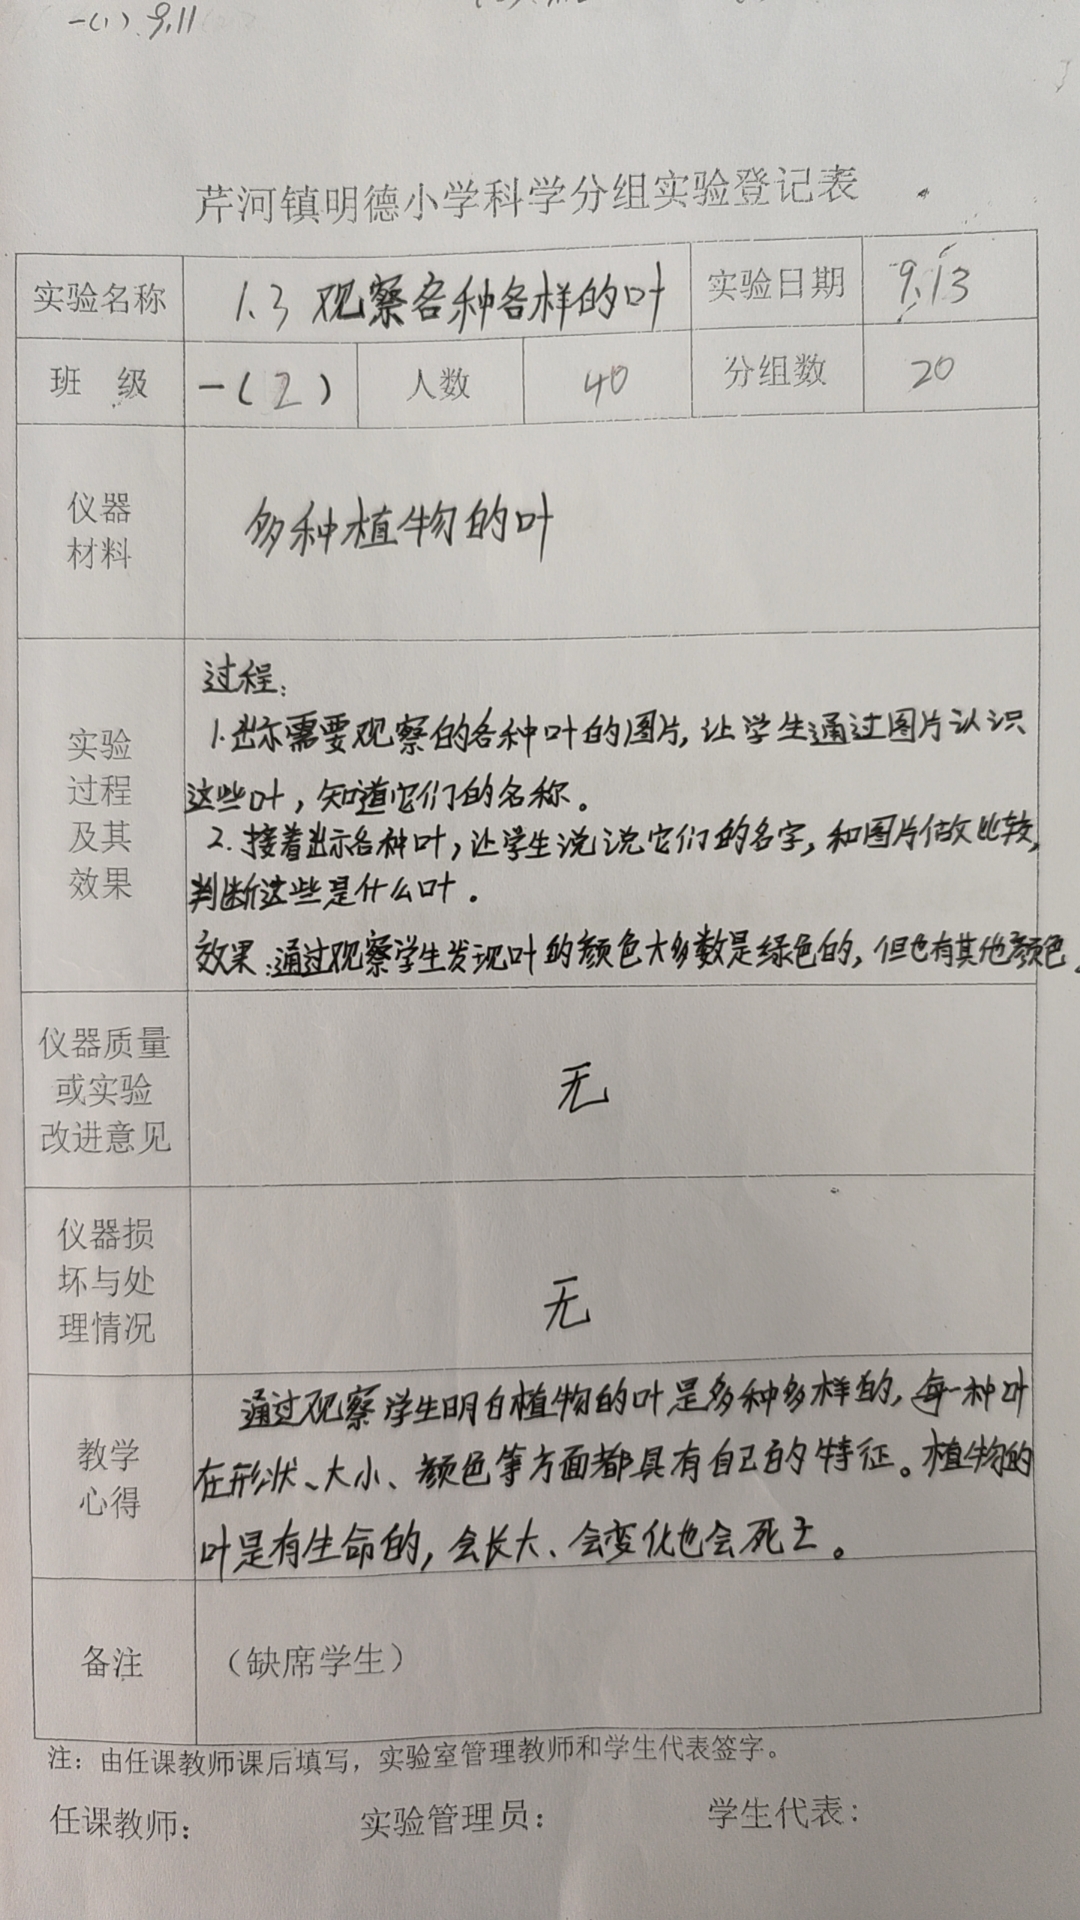 一(1) 9.11
芹河镇明德小学科学分组实验登记表
实验名称 1.3 观察各种各样的叶 实验日期 9.13
班 级 一(2) 人数 40 分组数 20
仪器
材料
多种植物的叶
实验
过程
及其
效果
过程:
1.出示需要观察的各种叶的图片,让学生通过图片认识
这些叶,知道它们的名称。
2.接着出示各种叶,让学生说说它们的名字,和图片做比较,
判断这些是什么叶。
效果:通过观察学生发现叶的颜色大多数是绿色的,但也有其他颜色。
仪器质量
或实验
改进意见
无
仪器损
坏与处
理情况
无
教学
心得
通过观察学生明白植物的叶是多种多样的,每一种叶
在形状、大小、颜色等方面都具有自己的特征。植物的
叶是有生命的,会长大、会变化也会死亡。
备注 （缺席学生）
注：由任课教师课后填写，实验室管理教师和学生代表签字。
任课教师： 实验管理员： 学生代表：